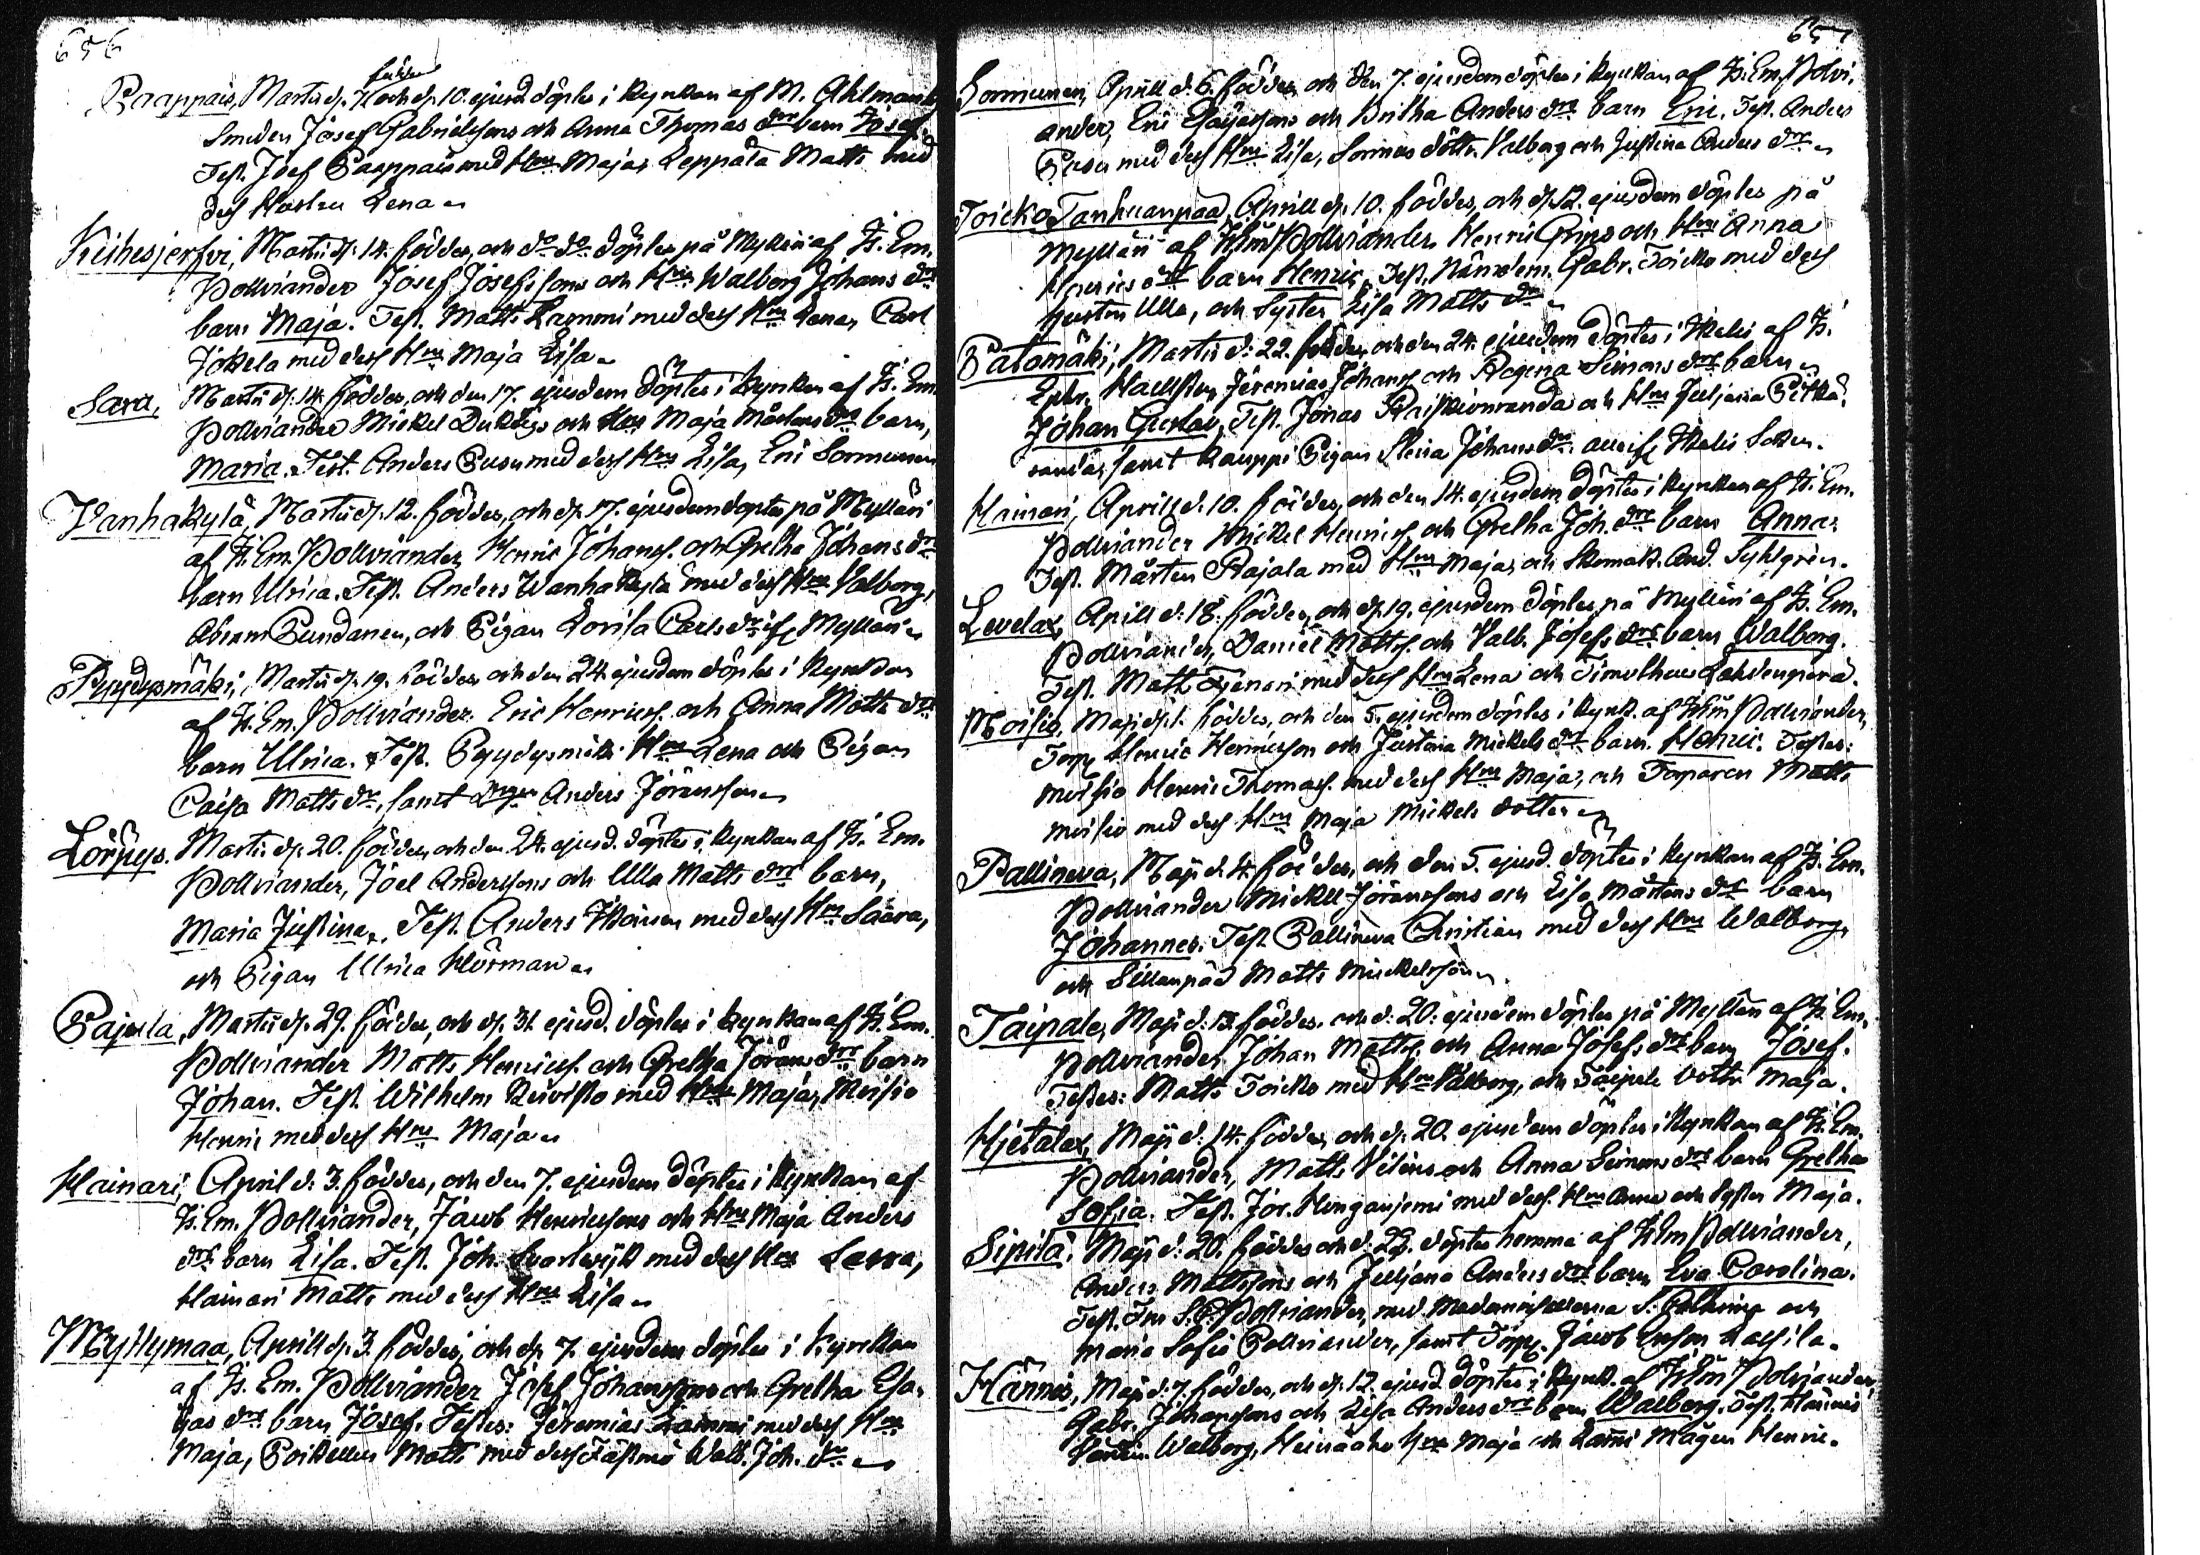 656
födder
Paappais, Martii d. 7 och d. 10. ejusd. döptes i Kyrckan af M. Ahlman
Smeden Josef Gabrielssons och Anna Thomas dors barn Josef
Test. Josef Paappais med Hus Maja, Leppälä Matts med
dess Hustru Lena
Keihesjerfvi, Martii d. 14. föddes, och do do döptes på Mylläri af H. Em.
Pollviander Josef Josefssons och Hus Walborg Johans drs
barn Maja. Test. Matts Lammi med dess Hus Lena, Carl
Jokela med dess Hus Maja Lisa
Sara, Martii d. 14. föddes, och den 17. ejusdem döptes i Kyrckan af H. Em.
Pollviander Mickel Duktigs och Hus Maja Mårtens drs barn,
Maria. Test. Anders Pusu med dess Hus Lisa, Eric Sormunen
Vanhakylä, Martii d. 12. föddes, och d. 17. ejusdem döptes på Mylläri
af H. Em. Pollviander Henric Johanss. och Gretha Johans drs
barn Ulrica. Test. Anders Wanhakylä med dess Hus Valborg,
Abram Pundanen, och Pigan Lovisa Carls dr if. Mylläri
Pyydysmäki, Martii d. 19. föddes och den 24. ejusdem döptes i Kyrckan
af H. Em. Pollviander. Eric Henricss. och Anna Matts drs
barn Ulrica. Test. Pyydysmäki Hus Lena och Pigan
Caisa Matts dr, samt Anders Jöransson
Lörpys. Martii d. 20. föddes, och den 24. ejusd. döptes i Kyrckan af H. Em.
Pollviander, Joel Anderssons och Ulla Matts drs barn,
Maria Justina. Test. Anders med dess Hus Saara,
och Pigan Ulrica Hörman
Pajula, Martii d. 29. föddes, och d. 31. ejusd. döptes i Kyrckan af H. Em.
Pollviander Matts Henricss. och Gretha Jörans drs barn
Johan. Test. Wilhelm med Hus Maja, Moisio
Henric med dess Hus Maja
Hainari, April d. 3. föddes, och den 7. ejusdem döptes i Kyrckan af
H. Em. Pollviander, Jacob Henricssons och Hus Maja Anders
drs barn Lisa. Test. Joh. med dess Hus Sarra,
Hainari Matts med dess Hus Lisa
Myllymaa, Aprill d. 3. föddes, och d. 7. ejusdem döptes i Kyrckan
af H. Em. Pollviander Josef Johanssons och Gretha Esa-
ias drs barn Josef. Testes: Jeremias Lammi med dess Hus
Maja, Matts med dess Fästmö Walb. Joh. dr
657
Sormunen, Aprill d. 6. föddes, och den 7. ejusdem döptes i Kyrckan af H. Em. Pollvi-
ander, Eric Esaiassons och Britha Anders drs barn Eric. Test. Anders
Pusu med dess Hus Lisa, Sormus dottr. Valborg och Justina Anders dr
Toicko Tanhuanpää, Aprill d. 10. föddes, och d. 12. ejusdem döptes på
Mylläri af H. Em Pollviander. Henric Grips och Hus Anna
Henrics drs barn Henric. Test. Nämdem. Gabr. Toicko med dess
Hustru Ulla, och Syster Lisa Matts dr
Patomäki, Martii d. 22. föddes, och den 24. ejusdem döptes i Ikalis af H.
Ephr. Hællsten Jeremias Johanss. och Regina Simons drs barn
Johan Gustav. Test. Jonas och Hus Juljana Pitkä-
randa, samt Kauppi Pigan Stina Johans dr. Ikalis Soken.
Hainari, Aprill d. 10. föddes, och den 14. ejusdem döptes i Kyrckan af H. Em.
Pollviander Mickel Henricss. och Gretha Joh. drs barn Anna.
Test. Mårten Rajala med Hus Maja, och Skomak. And. Syhlgren.
Levelax, Aprill d. 18. föddes, och d. 19. ejusdem döptes på Mylläri af H. Em.
Pollviander, Daniel Mattss. och Valb. Josefs drs barn Walborg.
Test. Matts med dess Hus Lena och Timotheus Lahdenperä.
Moisio, Maji d. 1. föddes, och den 5. ejusdem döptes i Kyrk. af H. Em Pollviander,
Torp. Henric Henricsson och Justina Mickels drs barn. Henric. Testes:
Moisio Henric Thomass. med dess Hus Maja, och Torparen Matts
Moisio med dess Hus Maja Mickels dotter
Pallineva, Maji d. 4. föddes, och den 5. ejusd. döptes i Kyrckan af H. Em.
Pollviander Mickel Jöranssons och Lisa Mårtens drs barn
Johannes. Test. Pallineva Christian med dess Hus Walborg,
och Sillanpää Matts Mickelsson
Taipale, Maji d. 13. föddes, och d. 20. ejusdem döptes på Mylläri af H. Em.
Pollviander, Johan Mattss. och Anna Josefs drs barn Josef.
Testes: Matts Toicko med Hus Valborg, och Taipale dottr. Maja.
Hjetalax, Maji d. 14. föddes, och d. 20. ejusdem döptes i Kyrckan af H. Em.
Pollviander, Matts och Anna Simons drs barn Gretha
Sofia. Test. Jör. med dess Hus Anna och Syster Maja.
Sipilä, Maji d. 20. föddes och d. 22. döptes hemma af H. Em Pollviander,
Anders Mattssons och Juljana Anders drs barn Eva Carolina.
Test. Pollviander, med och
Maria Sofia Pollviander, samt Torp. Jacob
Hännis, Maji d. 7. föddes, och d. 12. ejusd. döptes i Kyrck. af H. Em Pollviander
Gabr. Johanssons och Lisa Anders drs barn Walborg. Test. Hännis
Walborg, Heinäaho Hus Maja och Lammi Mågen Henric.